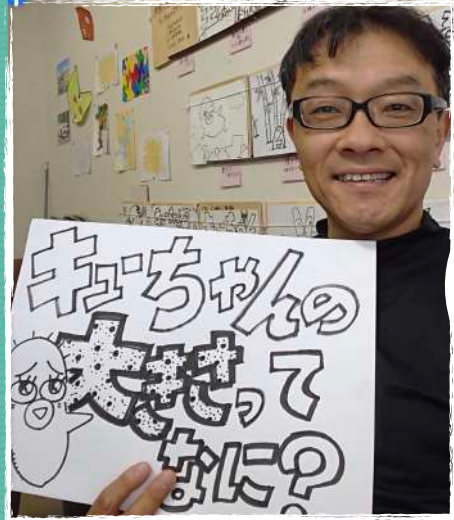 キューちゃんの
大きさって
なに?